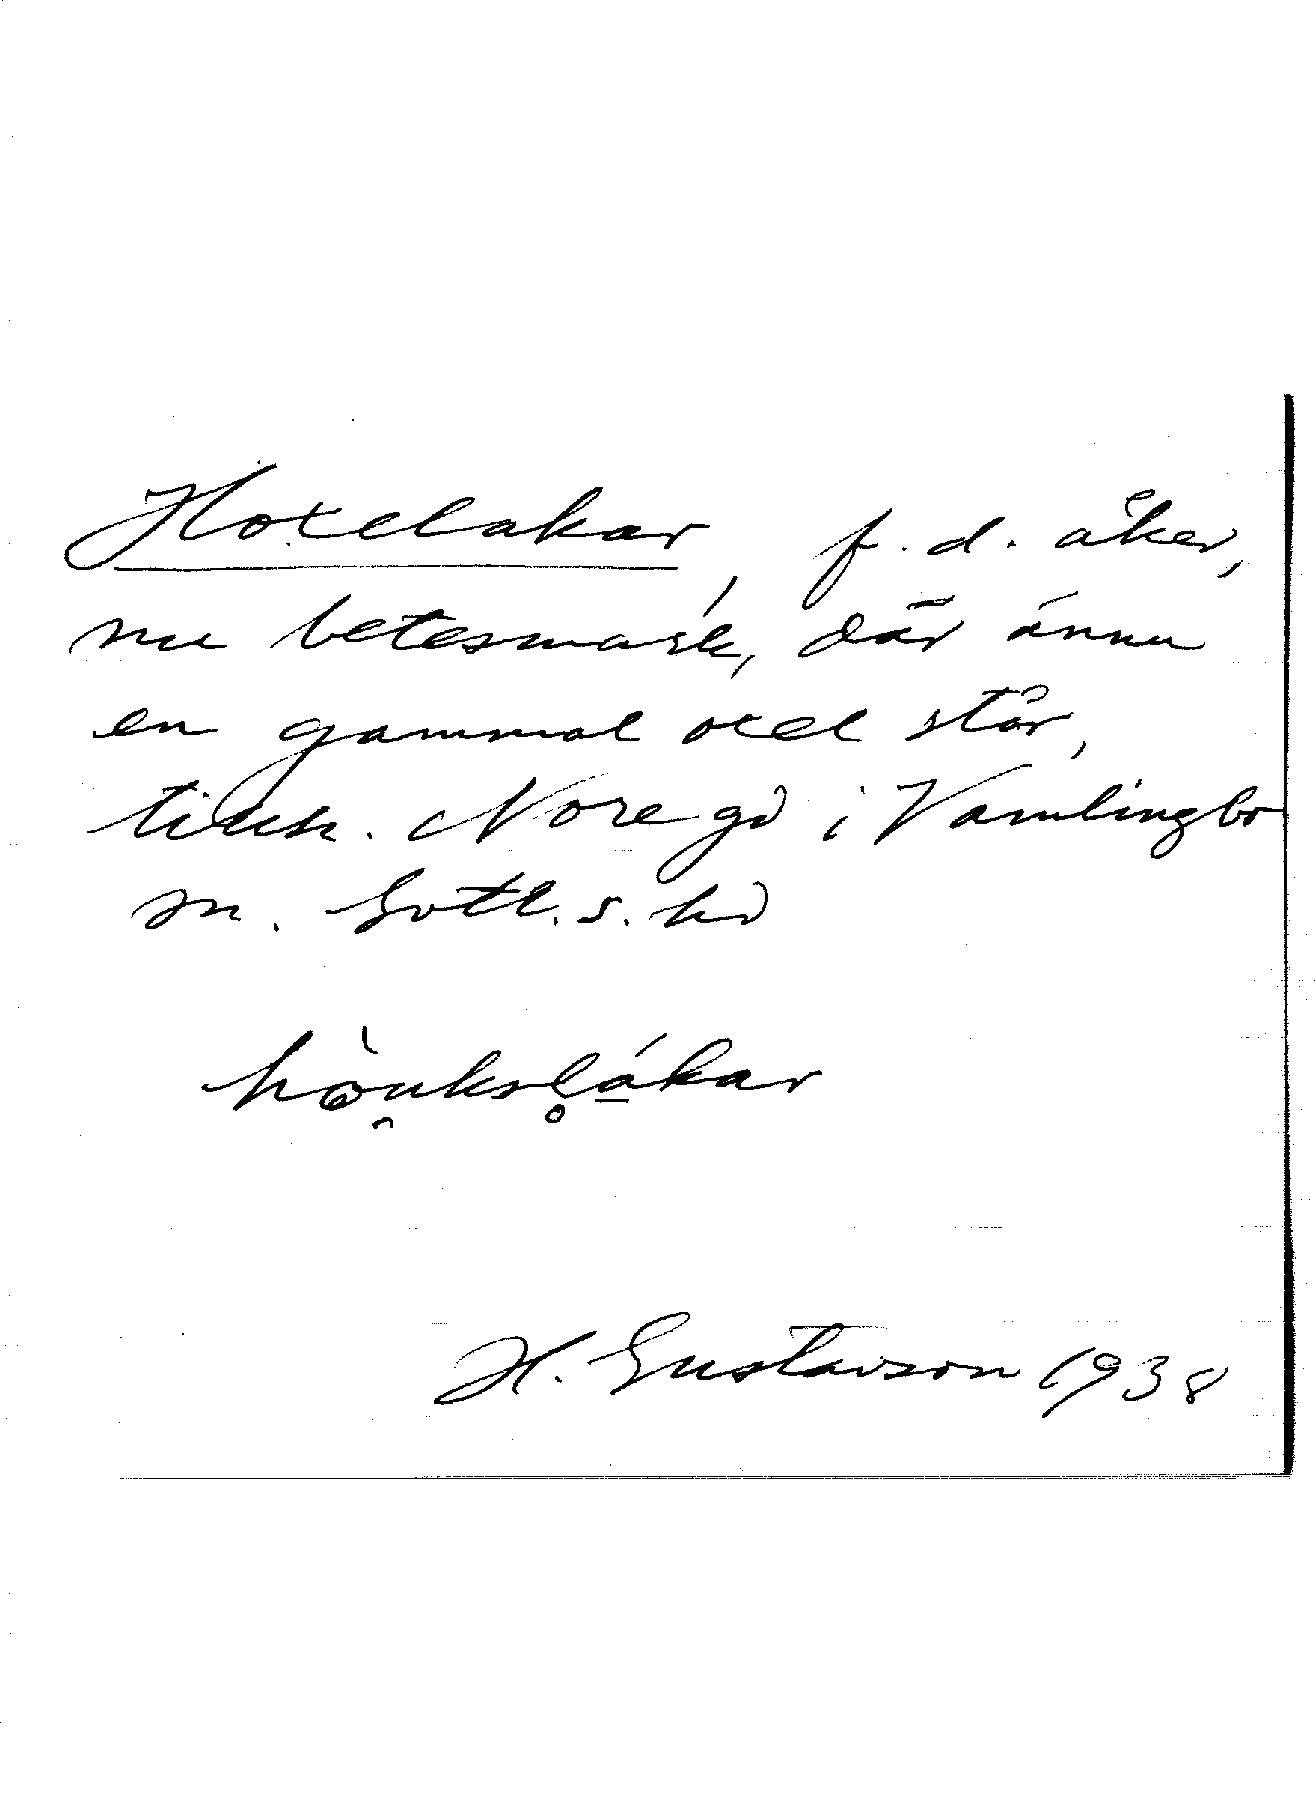 Hoxelakar, f. d. åker,
nu betesmark, där ännu
en gammal oxel står,
tillh. Nore gd i Vamlingbo
sn. Gotl. s. hd
hòu̯ksl̥ákar
H. Gustavson 1938